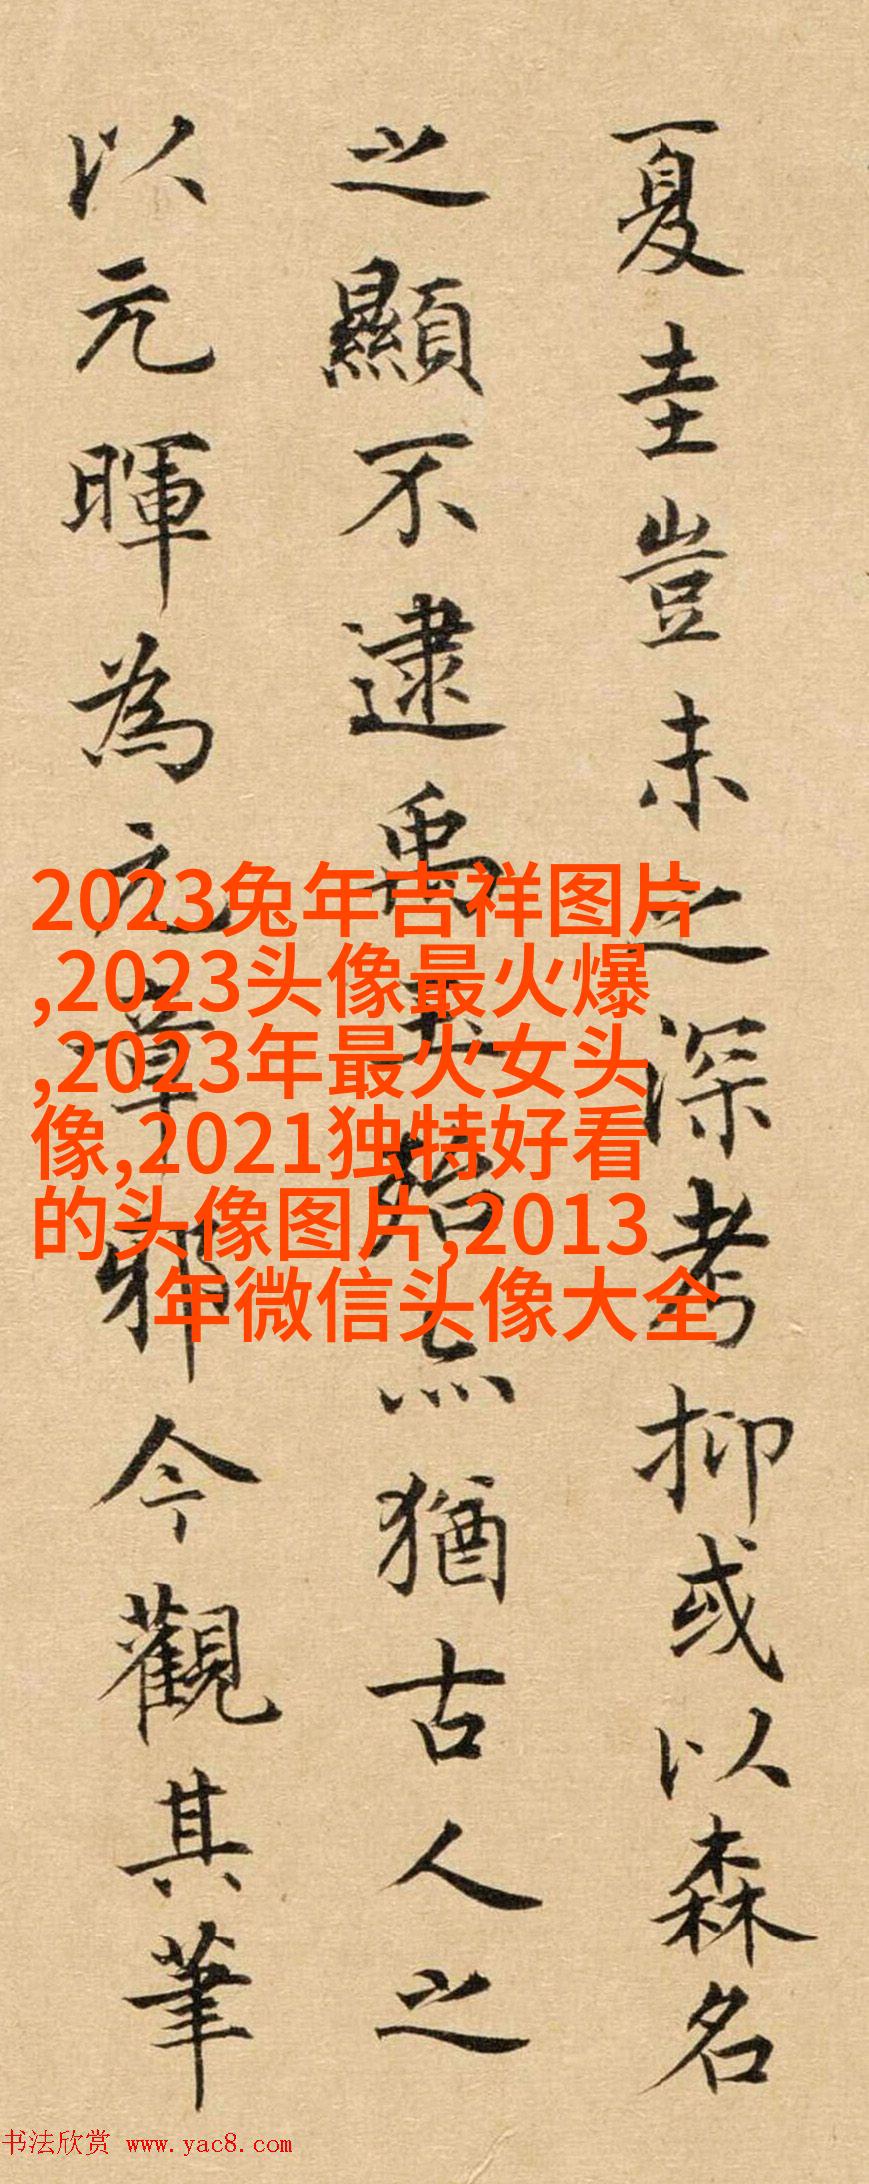 夏圭豈未之深考抑或以森名
之顯不逮禹玉故亡猶古人之
以元暉為元章邪今觀其筆
2023兔年吉祥图片
,2023头像最火爆
,2023年最火女头
像,2021独特好看
的头像图片,2013
年微信头像大全
书法欣赏 www.yac8.com